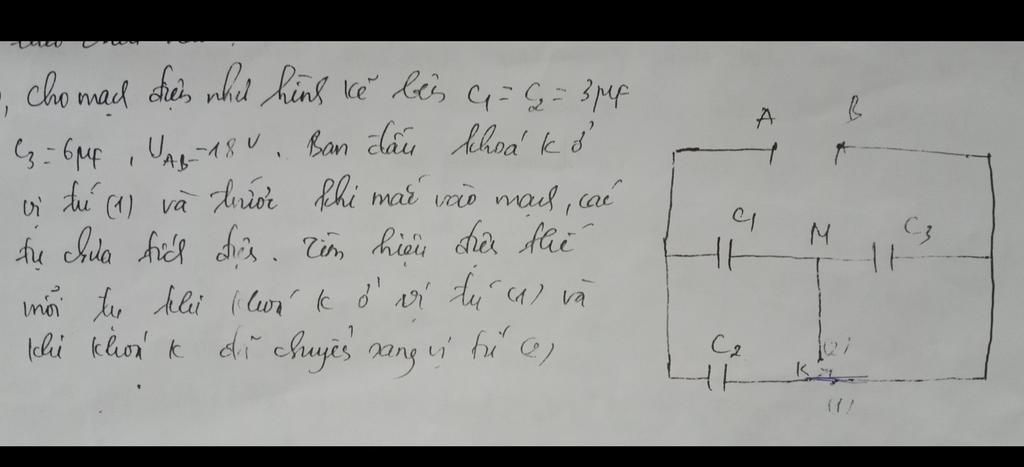 , Cho mạch điện như hình vẽ bên C1 = C2 = 3μf
C3 = 6μf , UAB = 18 V . Ban đầu khoá K ở
vị trí (1) và trước khi mắc vào mạch, các
tụ chưa tích điện. Tìm hiệu điện thế
mỗi tụ khi khoá K ở vị trí (1) và
khi khoá K di chuyển sang vị trí (2)
A B
C1 M C3
C2 (2)
K
(1)